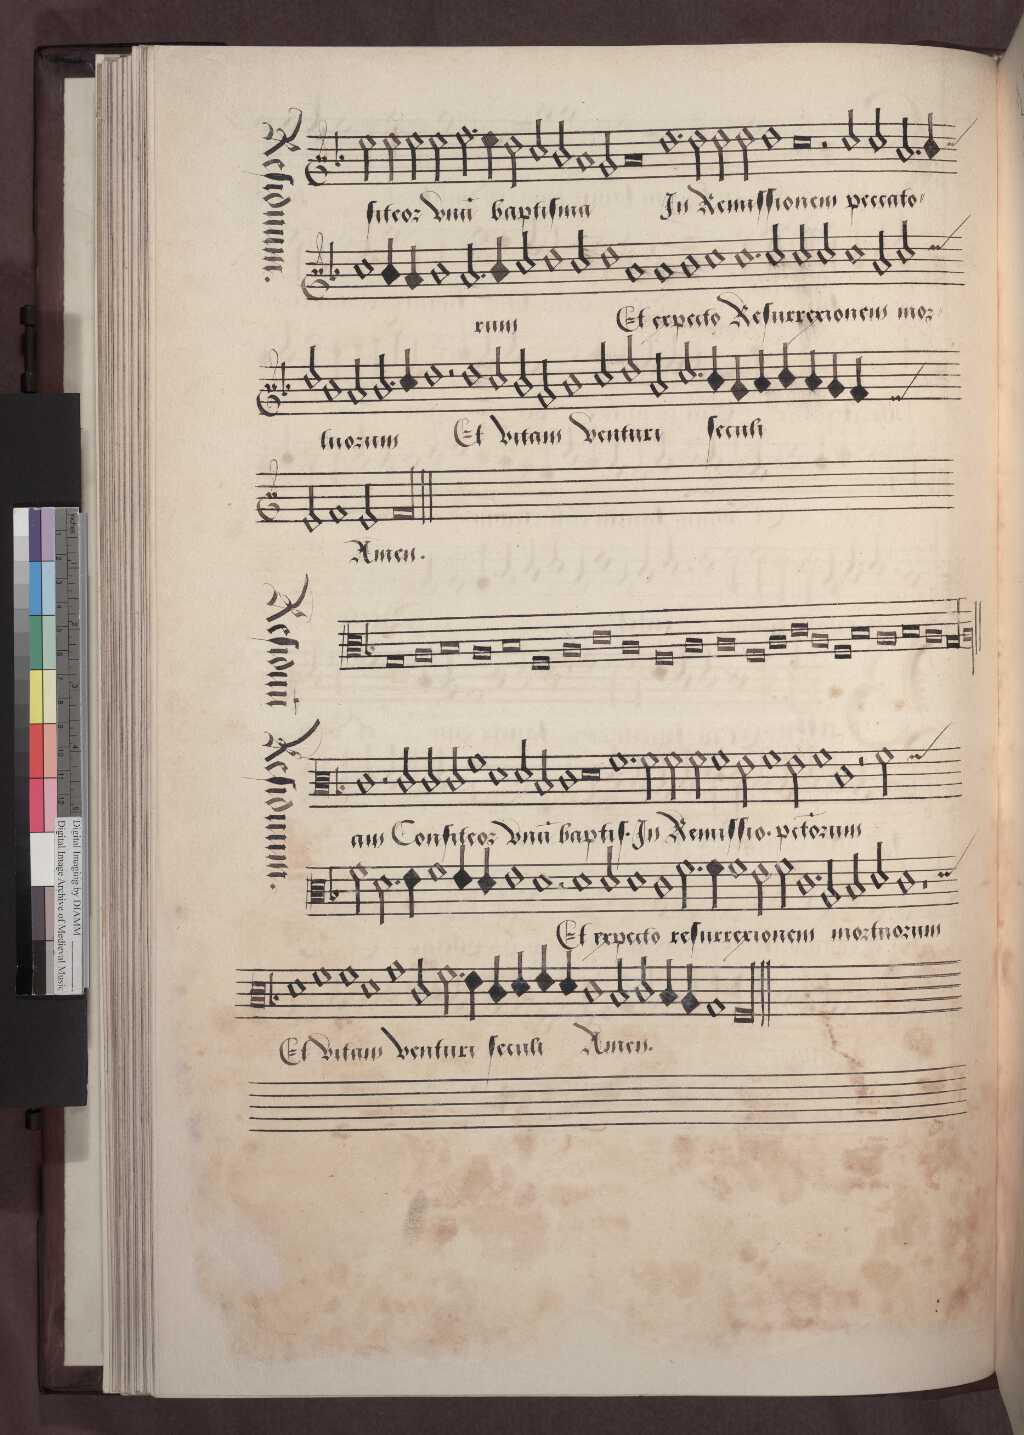 Residuum.
fiteor vnū baptisma In Remissionem peccato
rum Et expecto Resurrexionem mor
tuorum Et vitam venturi seculi
Amen.
Residuu.
Residuum.
am Confiteor vnū baptis. In Remissio. pctōrum
Et expecto resurrexionem mortuorum
Et vitam venturi seculi Amen.
Digital Imaging by DIAMM
Digital Image Archive of Medieval Music